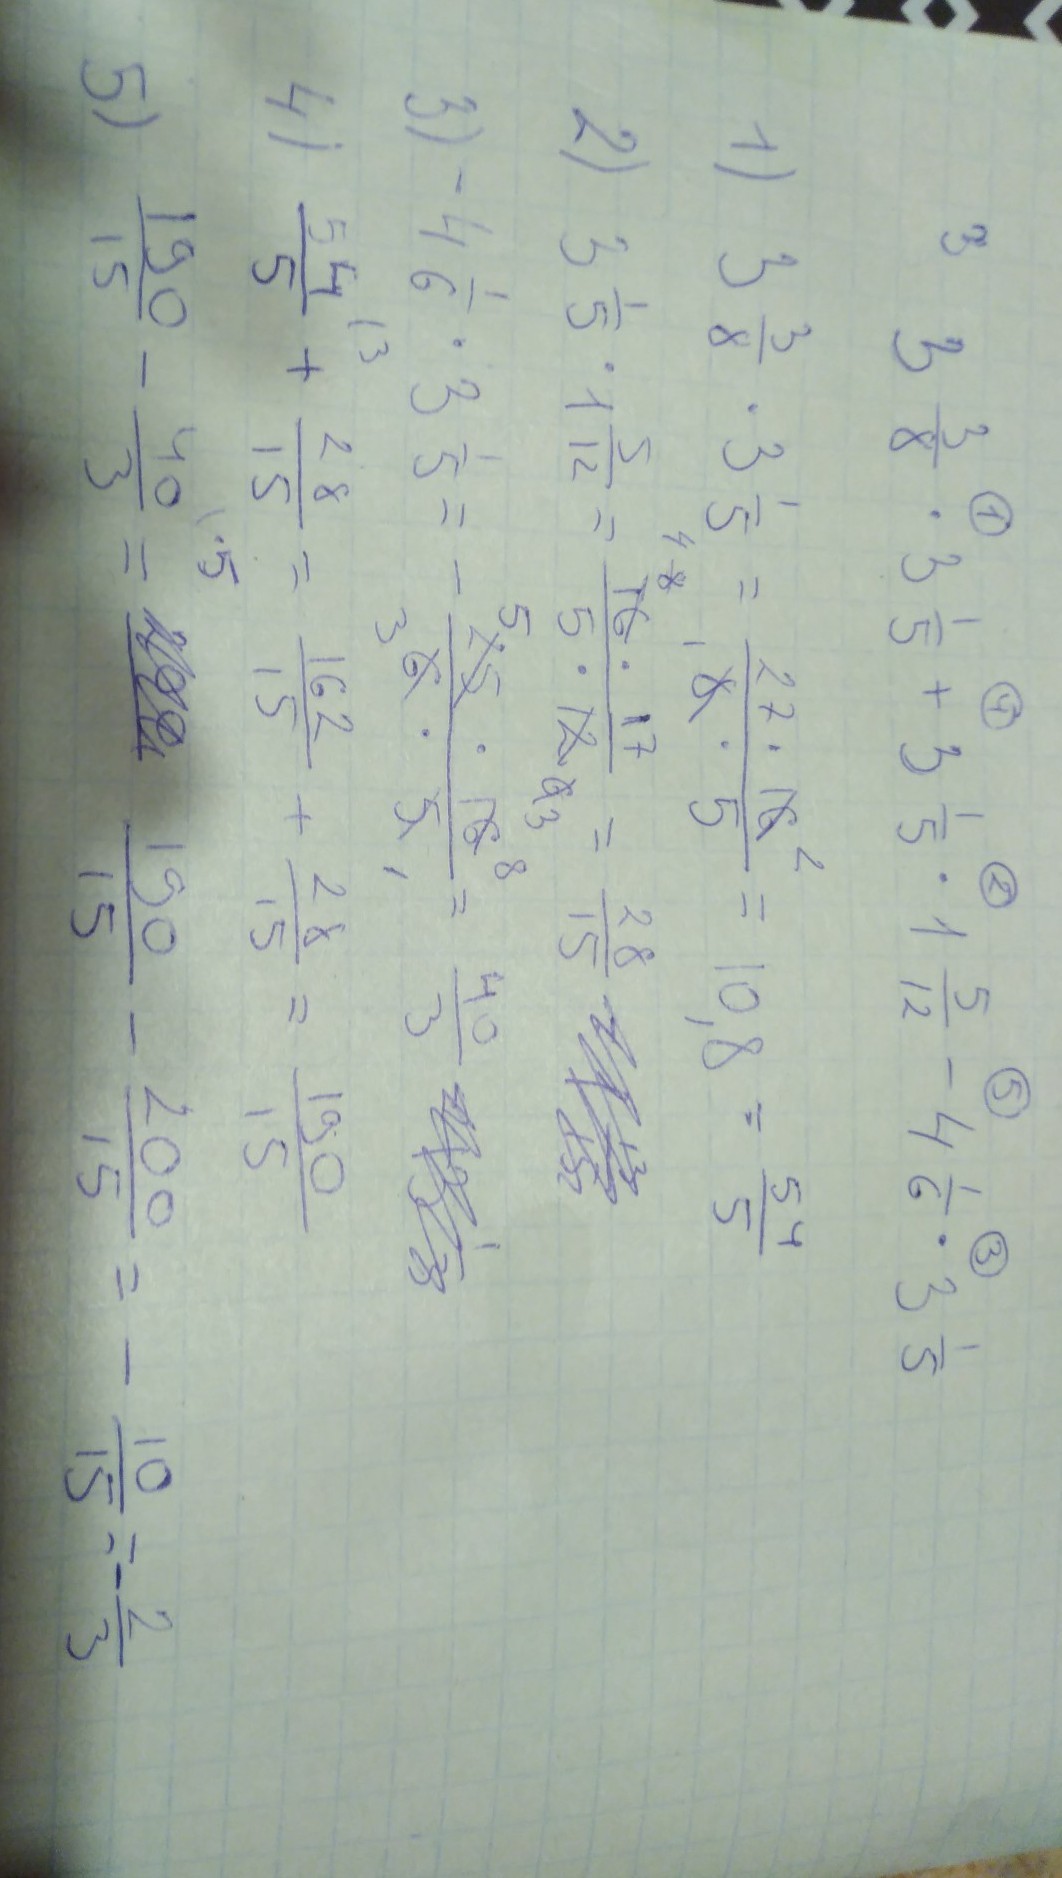 3 3 3/8 · 3 1/5 + 3 1/5 · 1 5/12 - 4 1/6 · 3 1/5
① ④ ② ⑤ ③
1) 3 3/8 · 3 1/5 = 27 · 16 2 / 1 8 · 5 = 10,8 = 54/5
2) 3 1/5 · 1 5/12 = 4 8 16 · 17 / 5 · 12 6 3 = 28/15
3) - 4 1/6 · 3 1/5 = - 5 25 · 16 8 / 3 6 · 5 1 = 40/3
4) 54/5 (3 + 28/15 = 162/15 + 28/15 = 190/15
5) 190/15 - 40/3 (·5 = 190/15 - 200/15 = - 10/15 = - 2/3